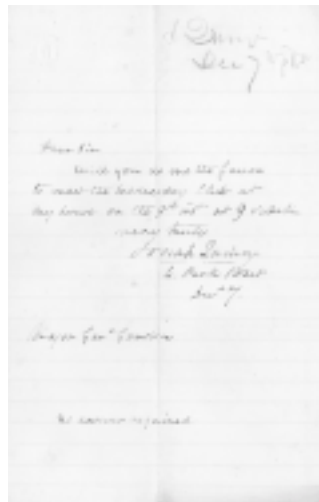 J Quincy
Dec 7
Dear Sir
Will you do me the favor
to meet the Wednesday Club at
my house on the 9th inst at 8 o'clock
yours truly
Josiah Quincy
5 Park Street
Dec 7.
Major Genl
No answer required